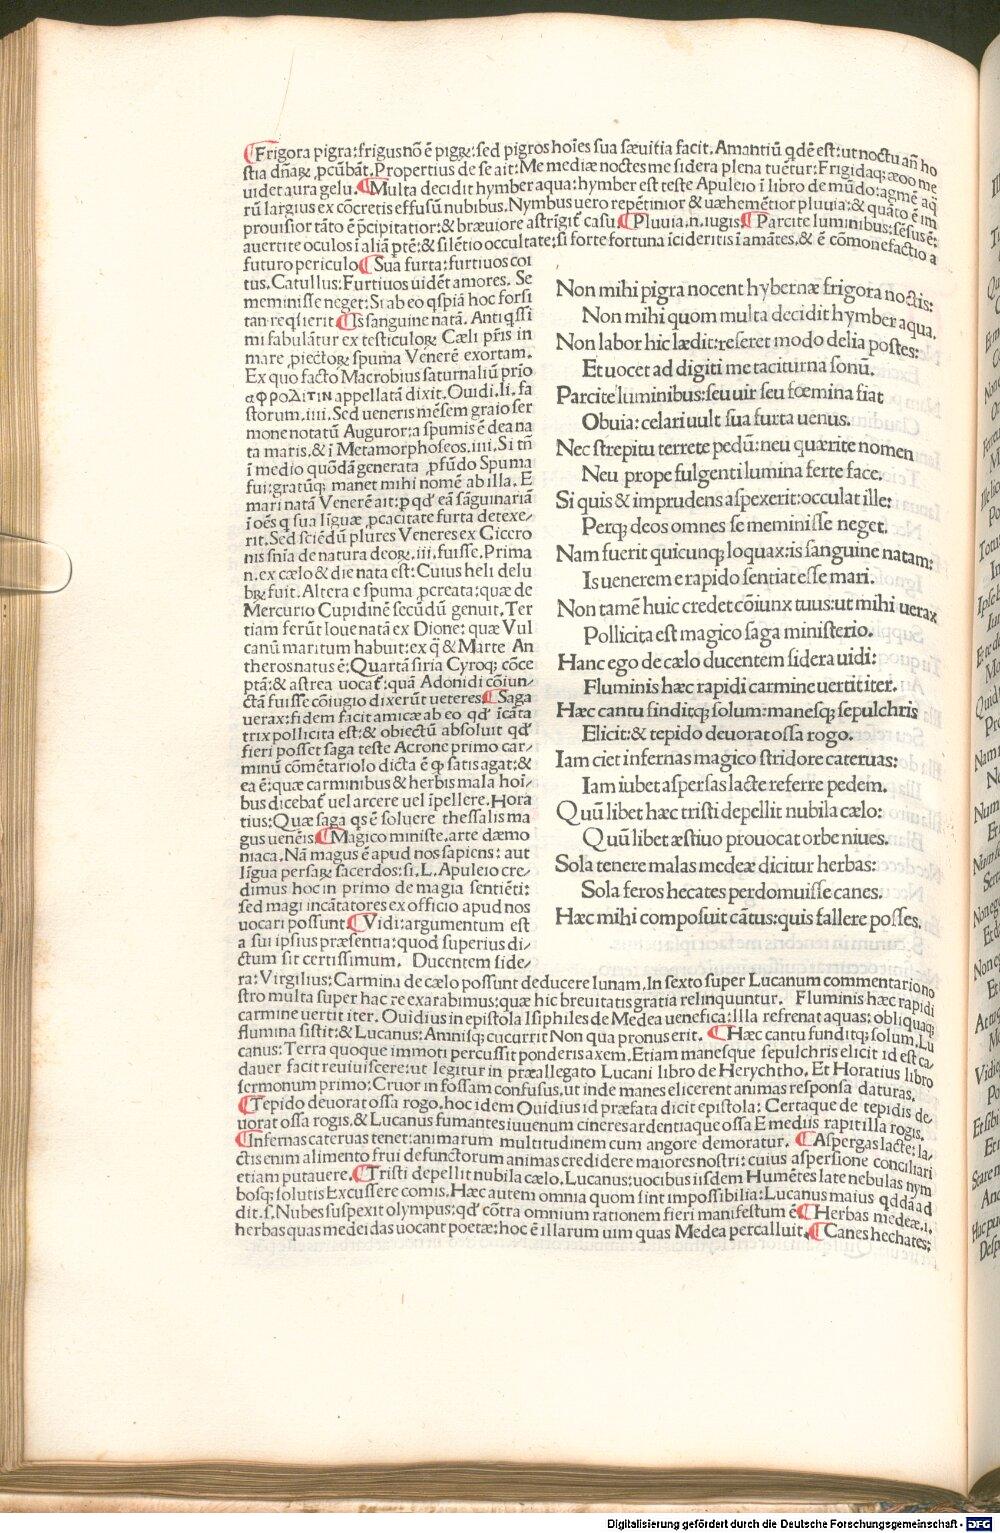 ¶Frigora pigra:frigus nō ē pigrꝝ:sed pigros hoīes sua sæuitia facit. Amantiū qdē est:ut noctu añ ho
stia dñaꝝ ꝑcūbāt. Propertius de se ait:Me mediæ noctes me sidera plena tuētur:Frigidaqꝫ æoo me
uidet aura gelu. ¶Multa decidit hymber aqua:hymber est teste Apuleio ī libro de mūdo:agmē aq
rū largius ex cōcretis effusū nubibus. Nymbus uero repētinior & uæhemētior pluuia:& quāto ē im
prouisior tāto ē p̄cipitatior:& bræuiore astrīgit᷑ casu. ¶Pluuia.n.iugis. ¶Parcite luminibus:sēsus ē:
auertite oculos ī aliā ptē:& silētio occultate:si forte fortuna īcideritis ī amātes.& ē cōmonefactio a
futuro periculo ¶Sua furta:furtiuos coi
tus.Catullus:Furtiuos uidēt amores. Se
meminisse neget:Si ab eo qspiā hoc forsi
tan reqsierit ¶Is sanguine natā. Anti qssi
mi fabulātur ex testiculoꝝ Cæli pris in
mare ꝓiectoꝝ spuma Venerē exortam.
Ex quo facto Macrobius saturnaliū prīo
αφροΔιτιν appellatā dixit. Ouidi.li.fa
storum.iiii. Sed ueneris mēsem graio ser
mone notatū Auguror:a spumis ē dea na
ta maris.& ī Metamorphoseos.iiii.Si tñ
ī medio quōdā generata ꝓfūdo Spuma
fui:gratūqꝫ manet mihi nomē ab illa. E
mari natā Venerē ait:ꝓ qd' eā sāguinariā
ī oēs q sua līguæ ꝓcacitate furta detexe/
rit.Sed sciēdū plures Veneres ex Cicero
nis snīa de natura deoꝝ.iii.fuisse.Prima
n.ex cælo & die nata est:Cuius heli delu
bꝝ fuit. Altera e spuma ꝓcreata:quæ de
Mercurio Cupidinē secūdū genuit.Ter
tiam ferūt Ioue natā ex Dione: quæ Vul
canū maritum habuit:ex q̄ & Marte An
theros natus ē: Quartā siria Cyroqꝫ cōce
ptā:& astrea uocat᷑:quā Adonidi cōiun/
ctā fuisse cōiugio dixerūt ueteres. ¶Saga
uerax:fidem facit amicæ ab eo qd' īcāta
trix pollicita est:& obiectū absoluit qd'
fieri posset saga teste Acrone primo car/
minū cōmētariolo dicta ē ꝙ satis agat:&
ea ē:quæ carminibus & herbis mala hoī/
bus dicebat᷑ uel arcere uel īpellere. Hora
tius:Quæ saga qs ē soluere thessalis ma
gus uenēis. ¶Magico ministe.arte dæmo
niaca.Nā magus ē apud nos sapiens: aut
līgua persaꝝ sacerdos:si.L.Apuleio cre/
dimus hoc in primo de magia sentiēti:
sed magi incātatores ex officio apud nos
uocari possunt. ¶Vidi:argumentum est
a sui ipsius præsentia:quod superius di/
ctum sit certissimum. Ducentem side/
Non mihi pigra nocent hybernæ frigora noctis:
Non mihi quom multa decidit hymber aqua.
Non labor hic lædit:reseret modo delia postes:
Et uocet ad digiti me taciturna sonū.
Parcite luminibus:seu uir seu fœmina fiat
Obuia:celari uult sua furta uenus.
Nec strepitu terrete pedū:neu quærite nomen
Neu prope fulgenti lumina ferte face.
Si quis & imprudens aspexerit:occulat ille:
Perqꝫ deos omnes se meminisse neget.
Nam fuerit quicunqꝫ loquax:is sanguine natam:
Is uenerem e rapido sentiat esse mari.
Non tamē huic credet cōiunx tuus:ut mihi uerax
Pollicita est magico saga ministerio.
Hanc ego de cælo ducentem sidera uidi:
Fluminis hæc rapidi carmine uertit iter.
Hæc cantu finditqꝫ solum:manesqꝫ sepulchris
Elicit:& tepido deuorat ossa rogo.
Iam ciet infernas magico stridore cateruas:
Iam iubet aspersas lacte referre pedem.
Quū libet hæc tristi depellit nubila cælo:
Quū libet æstiuo prouocat orbe niues.
Sola tenere malas medeæ dicitur herbas:
Sola feros hecates perdomuisse canes.
Hæc mihi composuit cātus:quis fallere posses.
ra:Virgilius:Carmina de cælo possunt deducere lunam.In sexto super Lucanum commentario no
stro multa super hac re exarabimus:quæ hic breuitatis gratia relinquuntur. Fluminis hæc rapidi
carmine uertit iter. Ouidius in epistola Isiphiles de Medea uenefica:Illa refrenat aquas: obliquaqꝫ
flumina sistit:& Lucanus:Amnisqꝫ cucurrit Non qua pronus erit. ¶Hæc cantu funditqꝫ solum.Lu
canus:Terra quoque immoti percussit ponderis axem.Etiam manesque sepulchris elicit id est ca/
dauer facit reuiuiscere:ut legitur in præallegato Lucani libro de Herychtho. Et Horatius libro
sermonum primo:Cruor in fossam confusus.ut inde manes elicerent animas responsa daturas.
¶Tepido deuorat ossa rogo.hoc idem Ouidius id præfata dicit epistola: Certaque de tepidis de/
uorat ossa rogis.& Lucanus fumantes iuuenum cineres ardentiaque ossa E mediis rapit illa rogis.
¶Infernas cateruas tenet:animarum multitudinem cum angore demoratur. ¶Aspergas lacte:la/
ctis enim alimento frui defunctorum animas credidere maiores nostri: cuius aspersione conciliari
etiam putauere. ¶Tristi depellit nubila cælo.Lucanus:uocibus iisdem Humētes late nebulas nym
bosqꝫ solutis Excussere comis.Hæc autem omnia quom sint impossibilia:Lucanus maius qddā ad
dit.s.Nubes suspexit olympus:qd' cōtra omnium rationem fieri manifestum ē ¶Herbas medeæ.i.
herbas quas medeidas uocant poetæ:hoc ē illarum uim quas Medea percalluit. ¶Canes hechates:
Digitalisierung gefördert durch die Deutsche Forschungsgemeinschaft - DFG